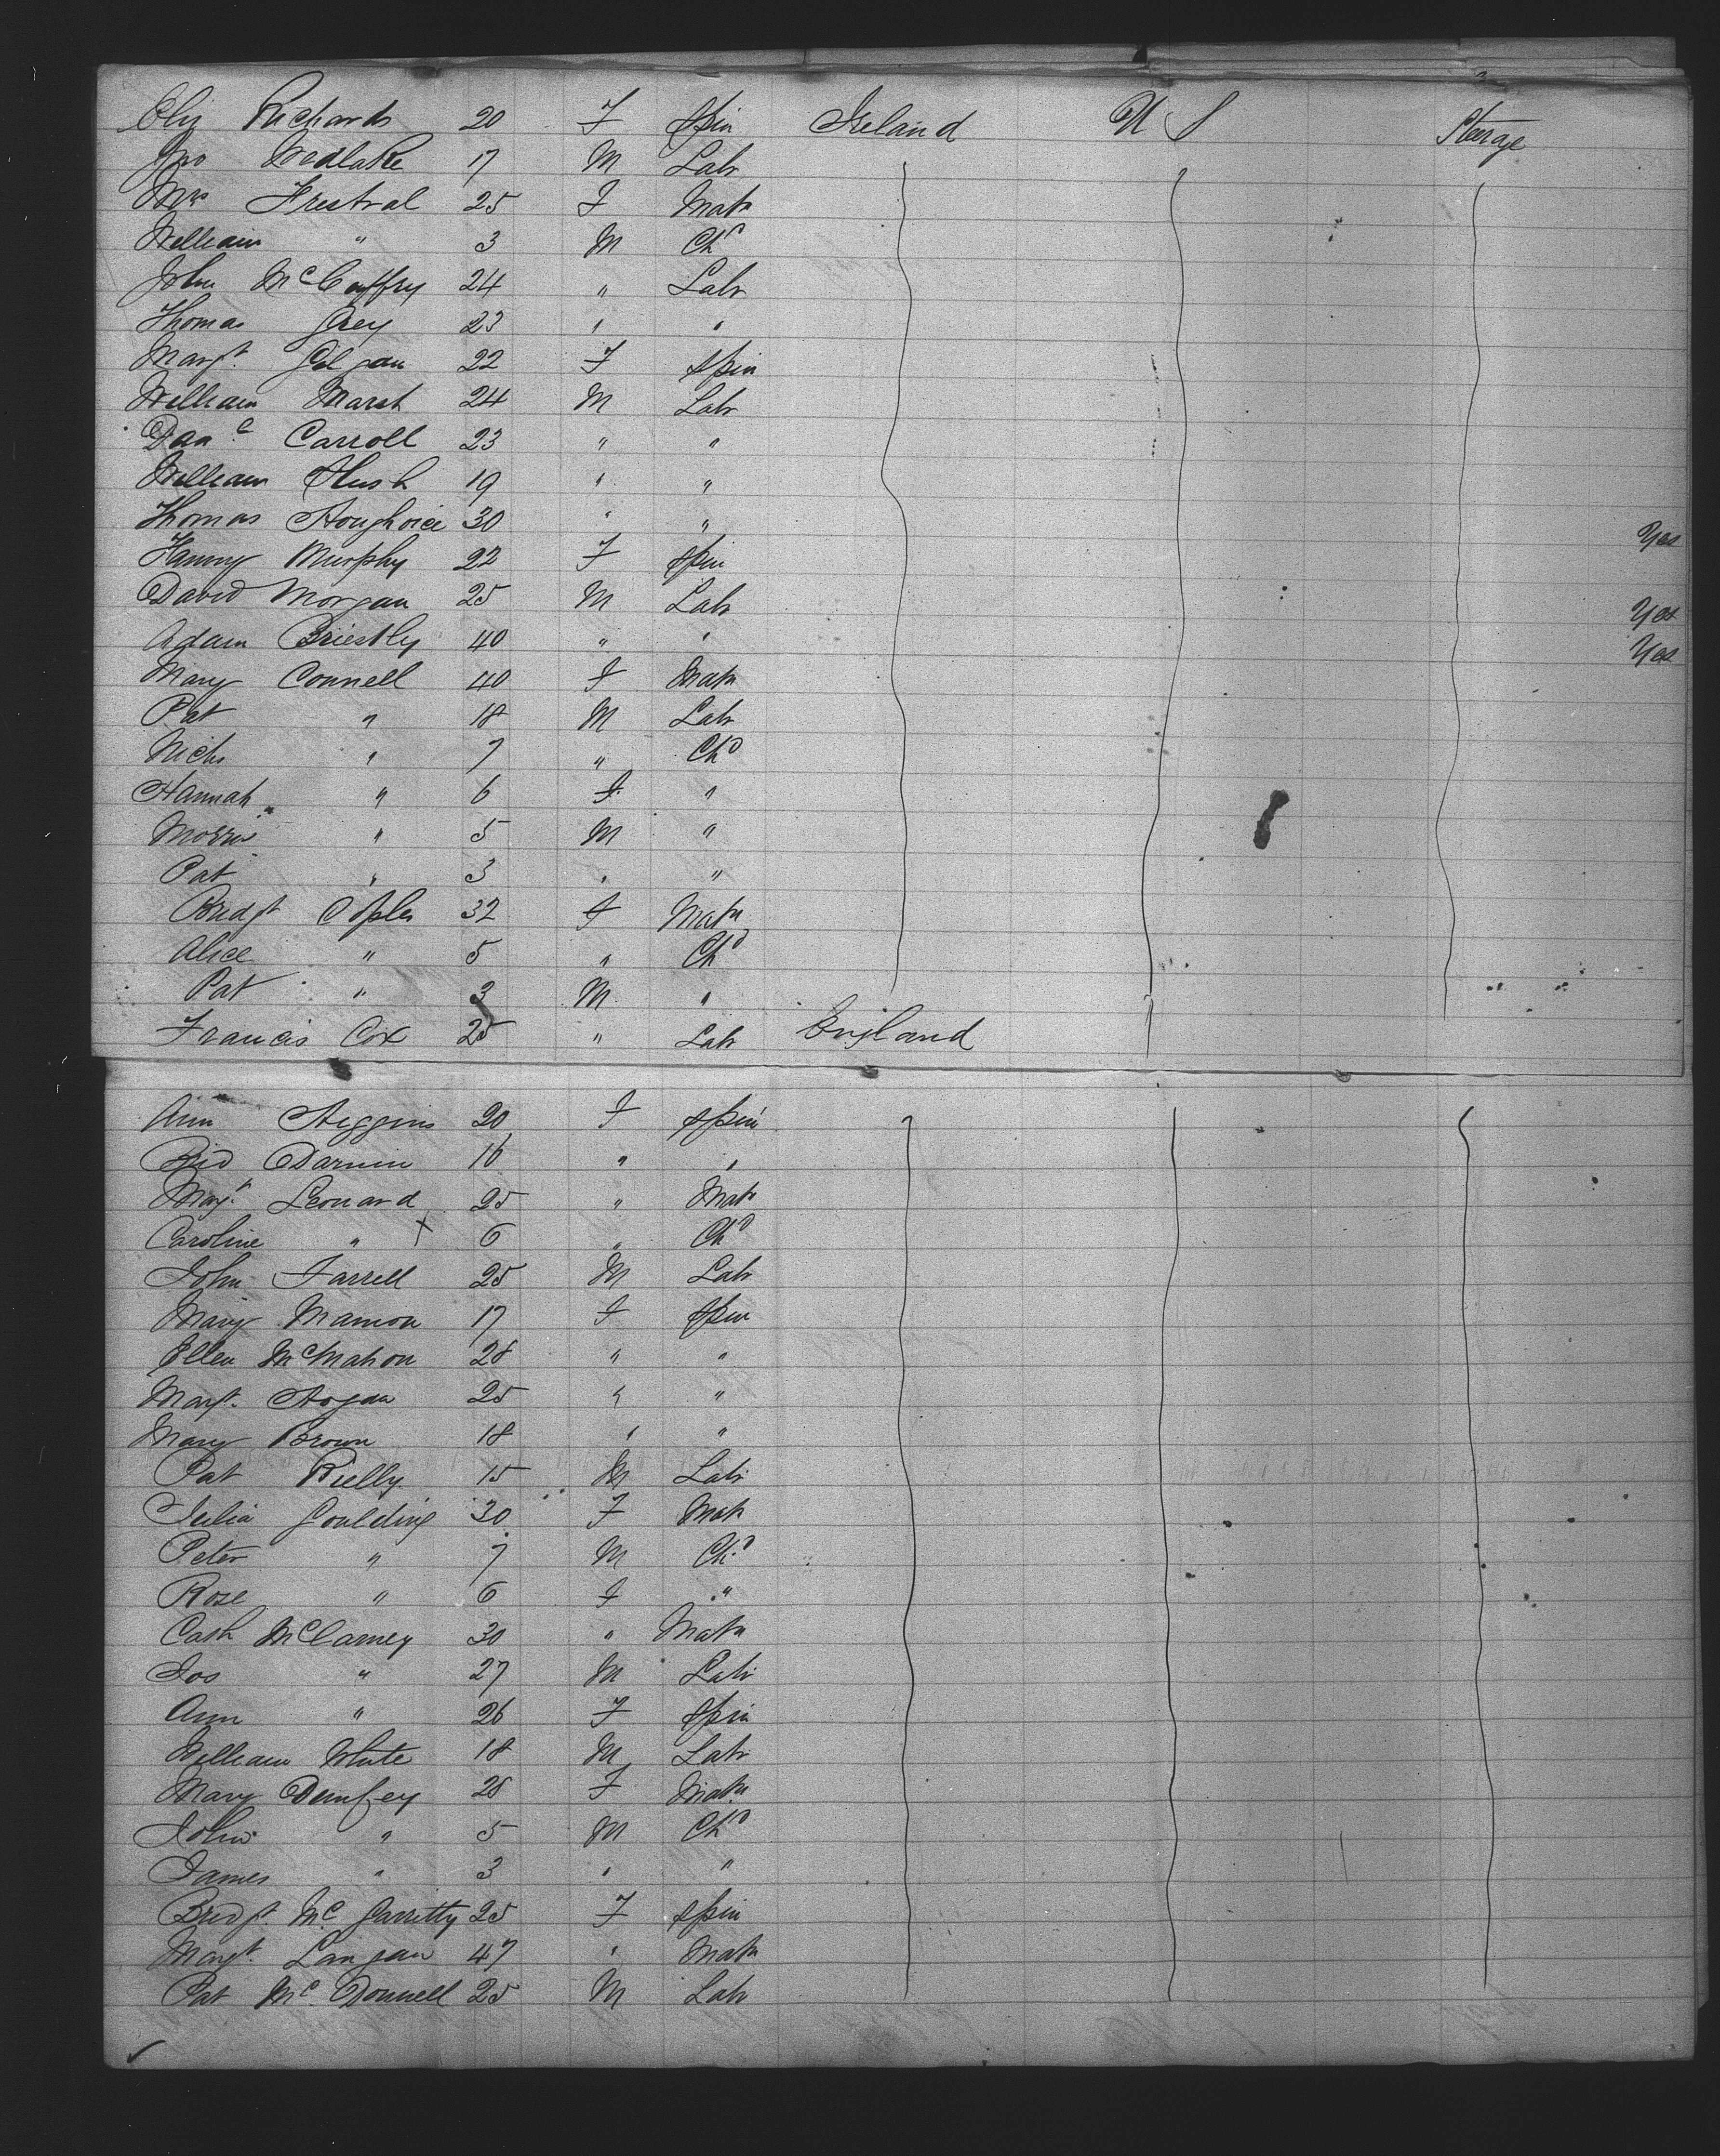 Eliz Richards 20 F Spin Ireland U S Steerage
Jno Wedlake 17 M Labr
Mrs Frestral 25 F Matn
William " 3 M Chd
John McCaffry 24 " Labr
Thomas Grey 23 " "
Margt. Gilgan 22 F Spin
William Marsh 24 M Labr
Danl Carroll 23 " "
William Hush 19 " "
Thomas 30 " " Yes
Fanny Murphy 22 F Spin
David Morgan 25 M Labr Yes
Adam Briestly 40 " " Yes
Mary Connell 40 F Matn
Pat " 18 M Labr
Nichs " 7 " Chd
Hannah " 6 F "
Morris " 5 M "
Pat " 3 " "
Bridgt 32 F Matn
Alice " 5 " Chd
Pat " 3 M "
Francis Cox 25 " Labr England
Ann Higgins 20 F Spin
Bid Darnin 16 " "
Margt Leonard 25 " Matn
Caroline " X 6 " Chd
John Farrell 25 M Labr
Mary Mannon 17 F Spin
Ellen McMahon 28 " "
Margt. Hogan 25 " "
Mary Brown 18 " "
Pat Rielly 15 M Labr
Julia Goulding 30 F Matn
Peter " 7 M Chd
Rose " 6 F "
Cath McCarney 30 " Matn
Jos " 27 M Labr
Ann " 26 F Spin
William White 18 M Labr
Mary Dunfey 28 F Matn
John " 5 M Chd
James " 3 " "
Bridgt. Mc Garritty 25 F Spin
Margt. Langan 47 " Matn
Pat Mc Donnell 25 M Labr